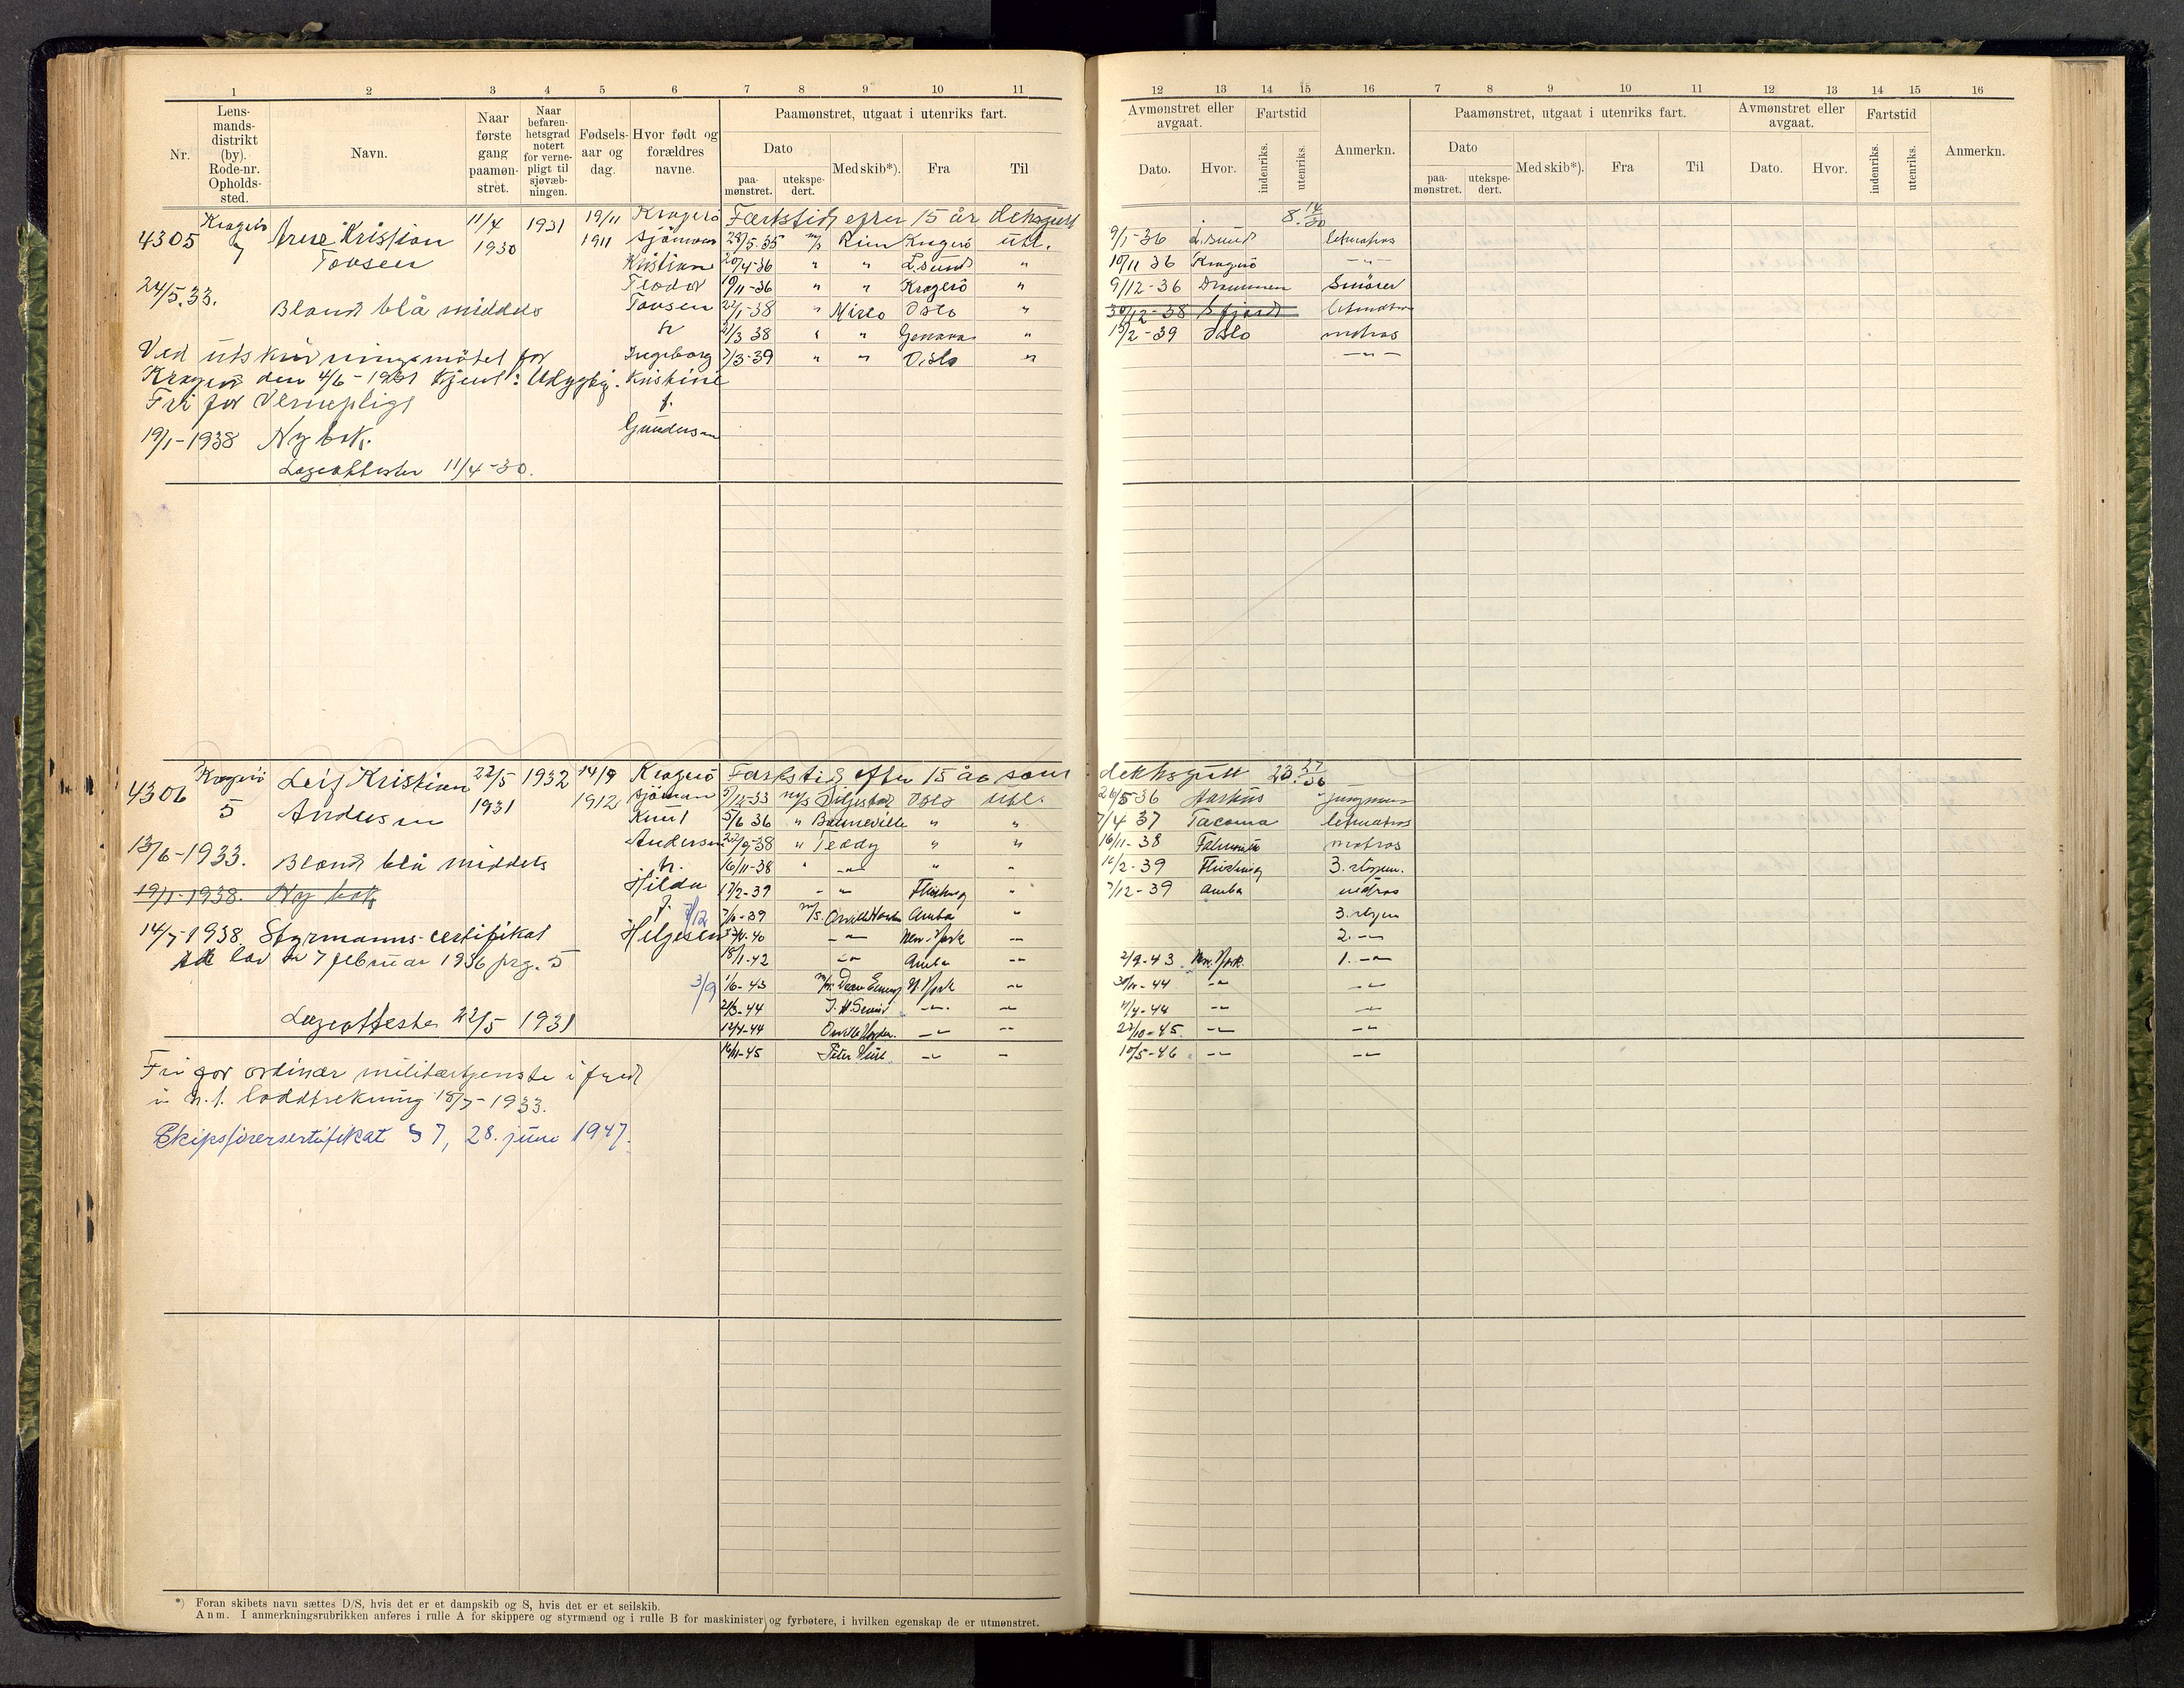 1 2 3 4 5 6 7 8 9 10 11
Nr.
Lens-mands-distrikt (by). Rode-nr. Opholds-sted.
Navn.
Naar første gang paamøn-stret.
Naar befaren-hetsgrad notert for verne-pligt til sjøvæb-ningen.
Fødsels-aar og dag.
Hvor født og forældres navne.
Paamønstret, utgaat i utenriks fart.
Dato
paa-mønstret. utekspe-dert. Med skib*). Fra Til
12 13 14 15 16 7 8 9 10 11 12 13 14 15 16
Avmønstret eller avgaat. Fartstid
Dato. Hvor. indenriks. utenriks. Anmerkn.
Paamønstret, utgaat i utenriks fart.
Dato
paa-mønstret. utekspe-dert. Med skib*). Fra Til
Avmønstret eller avgaat. Fartstid
Dato. Hvor. indenriks. utenriks. Anmerkn.
4305 Kragerö 7 Kristian 11/4 1930 1931 19/11 1911 Kragerö
sjömann
Kristian
Teodor
h
Ingeborg
Kristine
f.
Gundersen
24/5.33.
Blond blå middels
Ved utskrivningsmötet for
Kragerö den 4/6-1931 kjent: Udygtig.
Fri for Vernepligt
19/1-1938 Ny bok.
Lægeattester 11/4-30.
Fartstid efter 15 år dekksgutt 8.14/30
28/5.35 m/s Kragerö utl. 9/1-36 L.sund letmatros
20/4-36 " " L.sund " 10/11 36 Kragerö -"-
19/11-36 " " Kragerö " 9/12-36 Drammen Smörer
22/1-38 " Oslo " 30/12-38 letmatros
31/3 38 " " " 13/2-39 Oslo matros
7/3-39 " " Oslo " -"-
4306 Kragerö 5 Leif Kristian 22/5 1931 1932 14/9 1912 Kragerö
Andersen
sjömann
Knut
Andersen
h.
Hilda
f.
Helgesen
13/6-1933. Blond blå middels
19/1-1938. Ny bok
14/7-1938 Styrmanns-certifikat
lov av 7 februar 1936 prg. 5
Lægeattester 22/5 1931
Fri for ordinær militærtjeneste i fred
i h.t. loddtrekning 18/7-1933.
Skipsförersertifikat § 7, 28. juni 1947.
Fartstid efter 15 år som dekksgutt 23.27/30
5/12-33 m/s Siljestad Oslo utl. 26/5-36 Aarhus jungmann
5/6 36 " Bonneville " " 7/4 37 Tacoma letmatros
22/9-38 " Teddy " " 16/11-38 Falmouth matros
16/11-38 " -"- " 12/2-39 Flushing 3. styrm.
17/2-39 -"- Flushing " 7/12-39 Aruba matros
7/12
m/s. Orville Harden Aruba " 3. styrm
-"- New-York -"- 2. -"-
18/1-42 -"- Aruba -"- 2/9-43 New.York. 1. -"-
3/9
1/6-43 Dean Emery N. York -"- -"- -"-
21/3-44 -"- -"- 11/4-44 -"- -"-
12/4-44 Orville Harden. -"- -"- 22/10-45. -"- -"-
16/11-45 Peter Hurll. -"- -"- 10/5-46 -"- -"-
*) Foran skibets navn sættes D/S, hvis det er et dampskib og S, hvis det er et seilskib.
Anm. I anmerkningsrubrikken anføres i rulle A for skippere og styrmænd og i rulle B for maskinister og fyrbøtere, i hvilken egenskap de er utmønstret.